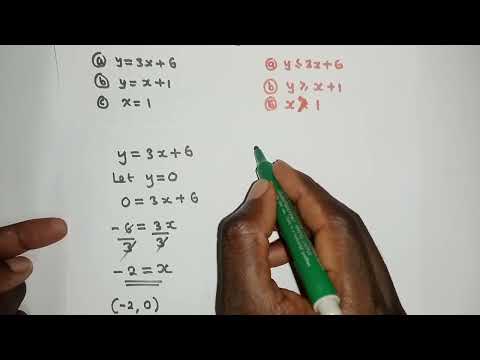 (a) y = 3x + 6
(b) y = x + 1
(c) x = 1
(a) y ≤ 3x + 6
(b) y ≥ x + 1
x 1
y = 3x + 6
Let y = 0
0 = 3x + 6
-6/3 = 3x/3
-2 = x
(-2, 0)